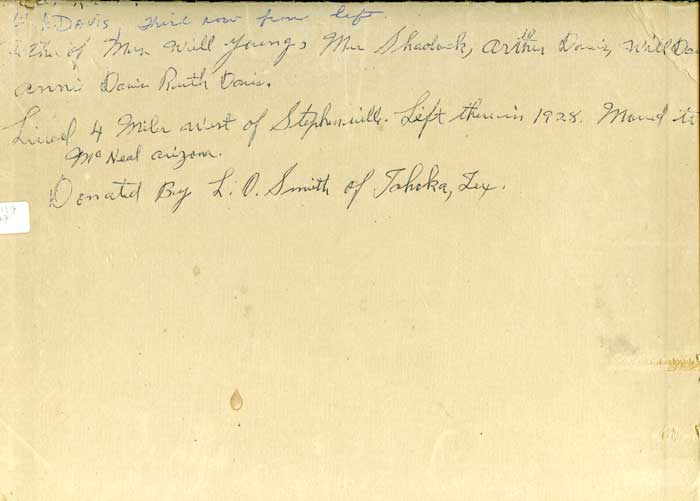 DAVIS, third row from left
of Mrs Will Young, Mrs Shadock, Arthur Davis, Will Da
Annie Davis Ruth Davis.
Lived 4 Miles west of Stephenville. Left there in 1928. Moved to
McNeal Arizona.
Donated By L. O. Smith of Tahoka, Tex.